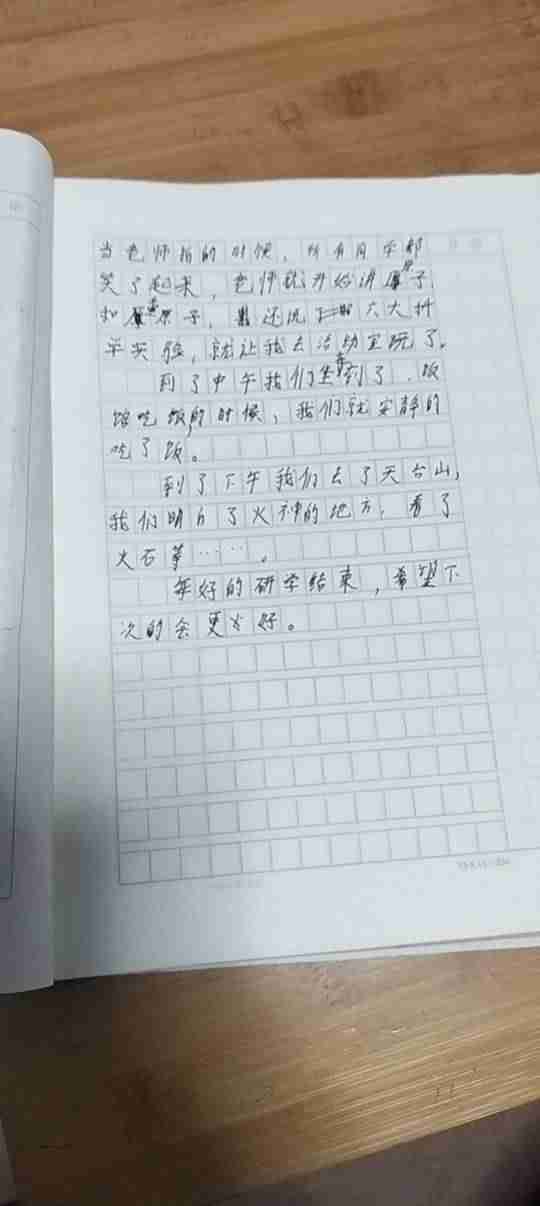 当老师拍的时候，所有同学都
笑了起来，老师就开始讲原子
和原子，还说六大科
学实验，就让我去活动室玩了。
到了中午我们坐车到了，饭
馆吃饭的时候，我们就安静的
吃了饭。
到了下午我们去了天台山，
我们明白了火神的地方，看了
火石等……。
年好的研学结束，希望下
次的会更好。